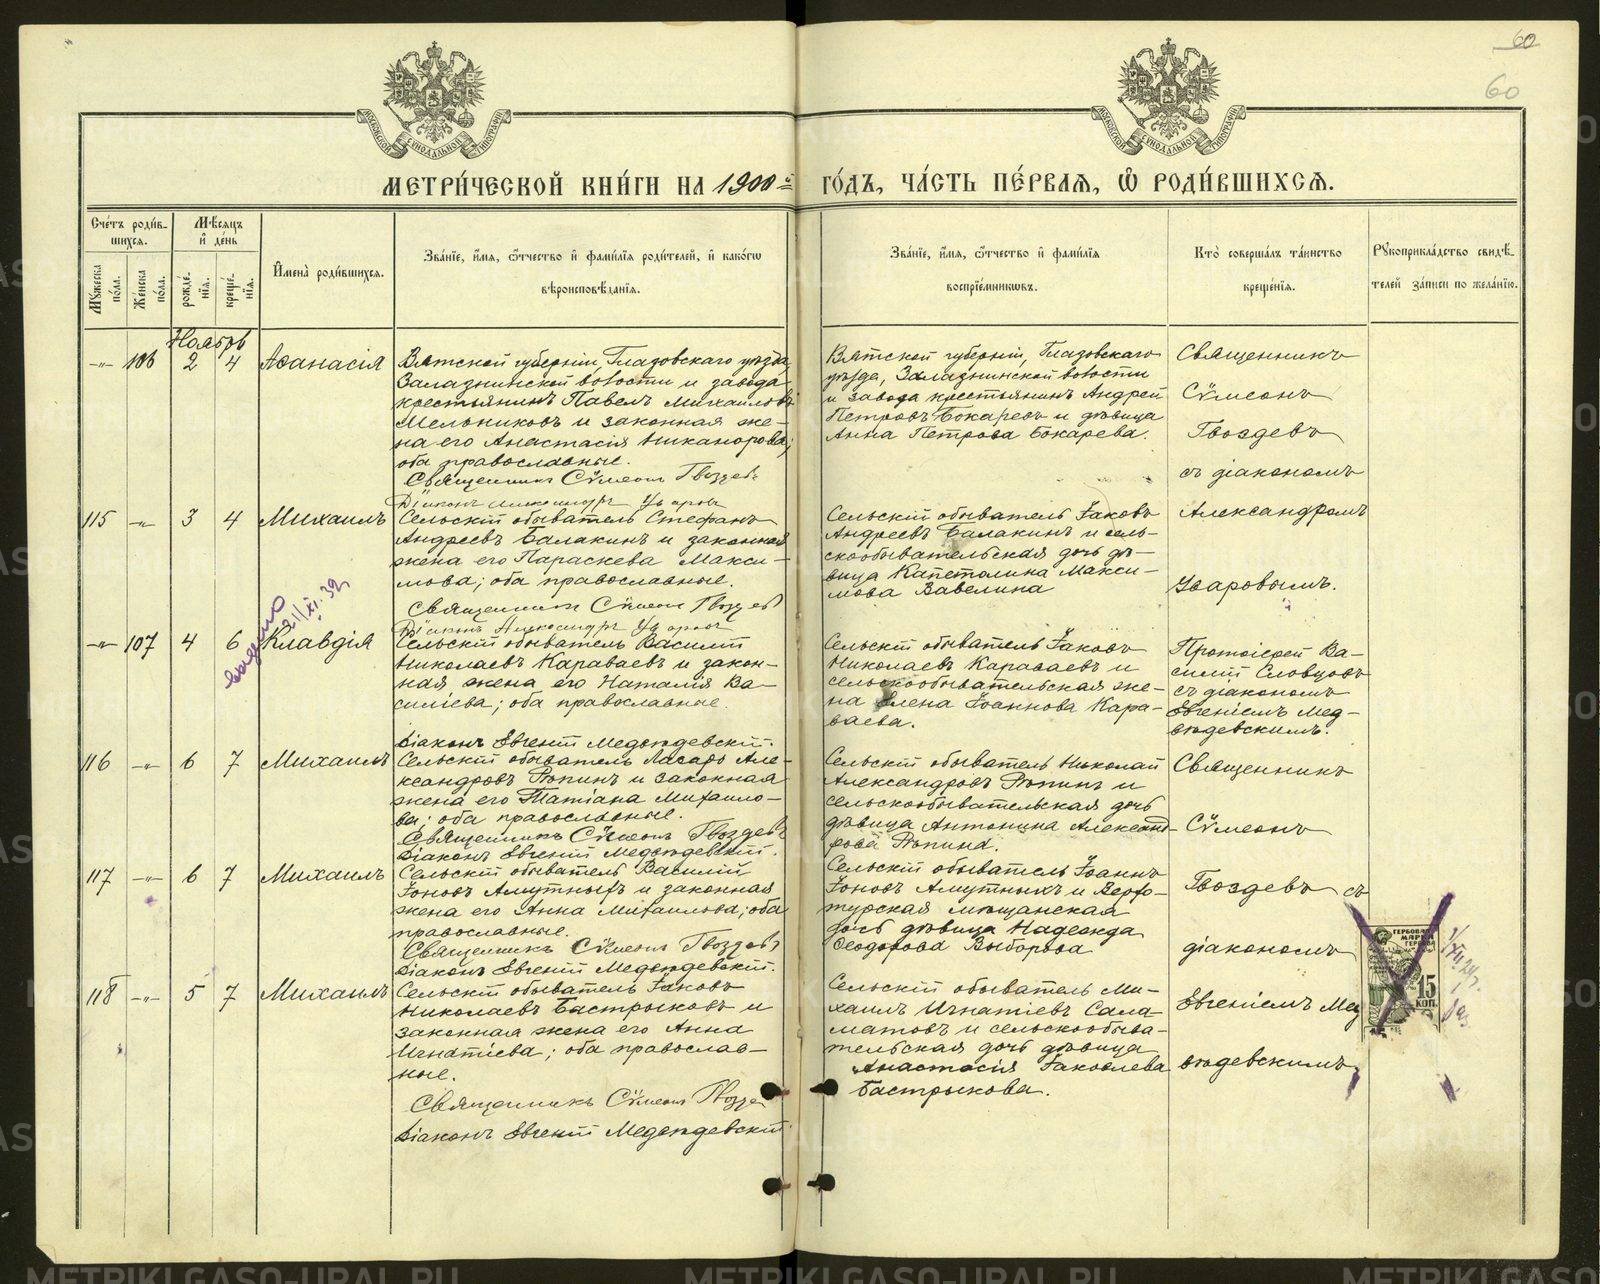 60
60
МОСКОВСКОЙ СѴНОДАЛЬНОЙ ТИПОГРАФІИ
МОСКОВСКОЙ СѴНОДАЛЬНОЙ ТИПОГРАФІИ
МЕТРИ́ЧЕСКОЙ КНИ́ГИ НА 1900й ГО́ДЪ, ЧА́СТЬ ПЕ́РВАЯ, Ѽ РОДИ́ВШИХСЯ.
Сче́тъ роди́в-
шихся.
Мѣ́сяцъ
и҆ де́нь
Мꙋ́жеска по́ла.
Же́нска по́ла.
рожде́нїя.
креще́нїя.
И҆мена̀ роди́вшихся.
Зва́нїе, и҆́мя, ѻ҆́тчество и҆ фами́лїя роди́телей, и҆ како́гѡ
вѣроисповѣ́данїя.
Зва́нїе, и҆́мя, ѻ҆́тчество и҆ фами́лїя
воспрїе́мникѡвъ.
Кто̀ соверша́лъ та́инство
креще́нїя.
Рꙋкоприкла́дство свидѣ́-
телей за́писи по жела́нїю.
Ноябрь
-"- 106 2 4 Аѳанасія
Вятской губерніи, Глазовскаго уѣзда,
Залазнинской волости и завода
крестьянинъ Павелъ Михаиловъ
Мельниковъ и законная же-
на его Анастасія Никанорова;
оба православные.
Священникъ Сѷмеонъ Гвоздевъ
Діаконъ Александръ Уваровъ
Вятской губерніи, Глазовскаго
уѣзда, Залазнинской волости
и завода крестьянинъ Андрей
Петровъ Бокаревъ и дѣвица
Анна Петрова Бокарева.
Священникъ
Сѷмеонъ
Гвоздевъ
съ діакономъ
Александромъ
Уваровымъ.
115 -"- 3 4 Михаилъ
Сельскій обыватель Стефанъ
Андреевъ Балакинъ и законная
жена его Параскева Макси-
мова; оба православные.
Священникъ Сѷмеонъ Гвоздевъ
Діаконъ Александръ Уваровъ
Сельскій обыватель Іаковъ
Андреевъ Балакинъ и сель-
скообывательская дочь дѣ-
вица Капетолина Макси-
мова Вавелина
выдано
21/XI. 32
-"- 107 4 6 Клавдія
Сельскій обыватель Василій
Николаевъ Караваевъ и закон-
ная жена его Наталія Ва-
силіева; оба православные.
Діаконъ Евгеній Медвѣдевскій.
Сельскій обыватель Іаковъ
Николаевъ Караваевъ и
сельскообывательская же-
на Елена Іоаннова Кара-
ваева.
Протоіерей Ва-
силій Словцовъ
съ діакономъ
Евгеніемъ Мед-
вѣдевскимъ.
116 -"- 6 7 Михаилъ
Сельскій обыватель Лазарь Але-
ксандровъ Рѣпинъ и законная
жена его Татіана Михаило-
ва; оба православные.
Священникъ Сѷмеонъ Гвоздевъ
Діаконъ Евгеній Медвѣдевскій.
Сельскій обыватель Николай
Александровъ Рѣпинъ и
сельскообывательская дочь
дѣвица Антонина Александ-
рова Рѣпина.
Священникъ
Сѷмеонъ
Гвоздевъ съ
діакономъ
Евгеніемъ Мед
вѣдевскимъ.
117 -"- 6 7 Михаилъ
Сельскій обыватель Василій
Іоновъ Амутныхъ и законная
жена его Анна Михаилова; оба
православные.
Священникъ Сѷмеонъ Гвоздевъ
Діаконъ Евгеній Медвѣдевскій.
Сельскій обыватель Іоаннъ
Іоновъ Амутныхъ и Верхо-
турская мѣщанская
дочь дѣвица Надежда
Ѳеодорова Выборова
118 -"- 5 7 Михаилъ
Сельскій обыватель Іаковъ
Николаевъ Бастрыковъ и
законная жена его Анна
Игнатіева; оба православ-
ные.
Священникъ Сѷмеонъ Гвоздев
Діаконъ Евгеній Медвѣдевскій.
Сельскій обыватель Ми-
хаилъ Игнатіевъ Сала-
матовъ и сельскообыва-
тельская дочь дѣвица
Анастасія Іаковлева
Бастрыкова.
ГЕРБОВАЯ
МАРКА
15
КОП.
METRIKI.GASO-URAL.RU